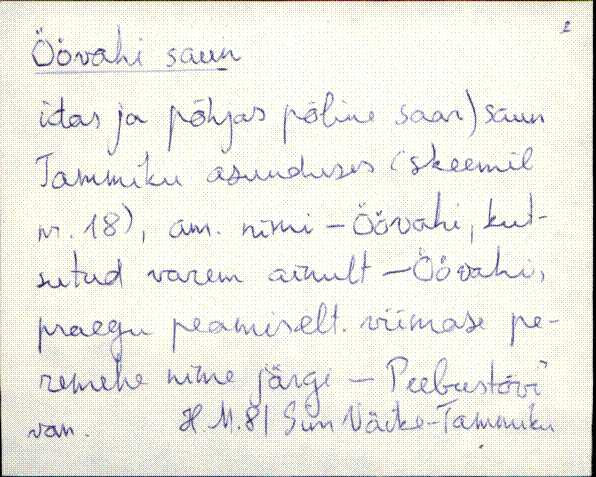 2
Öövahi saun
idas ja põhjas põline saar) saun
Tammiku asunduses (skeemil
nr. 18), am. nimi - Öövahi, kut-
sutud varem ainult - Öövahi,
praegu peamiselt. viimase pe-
remehe nime järge - Peebustövi
van. H M. 81 Sim Väike-Tammiku